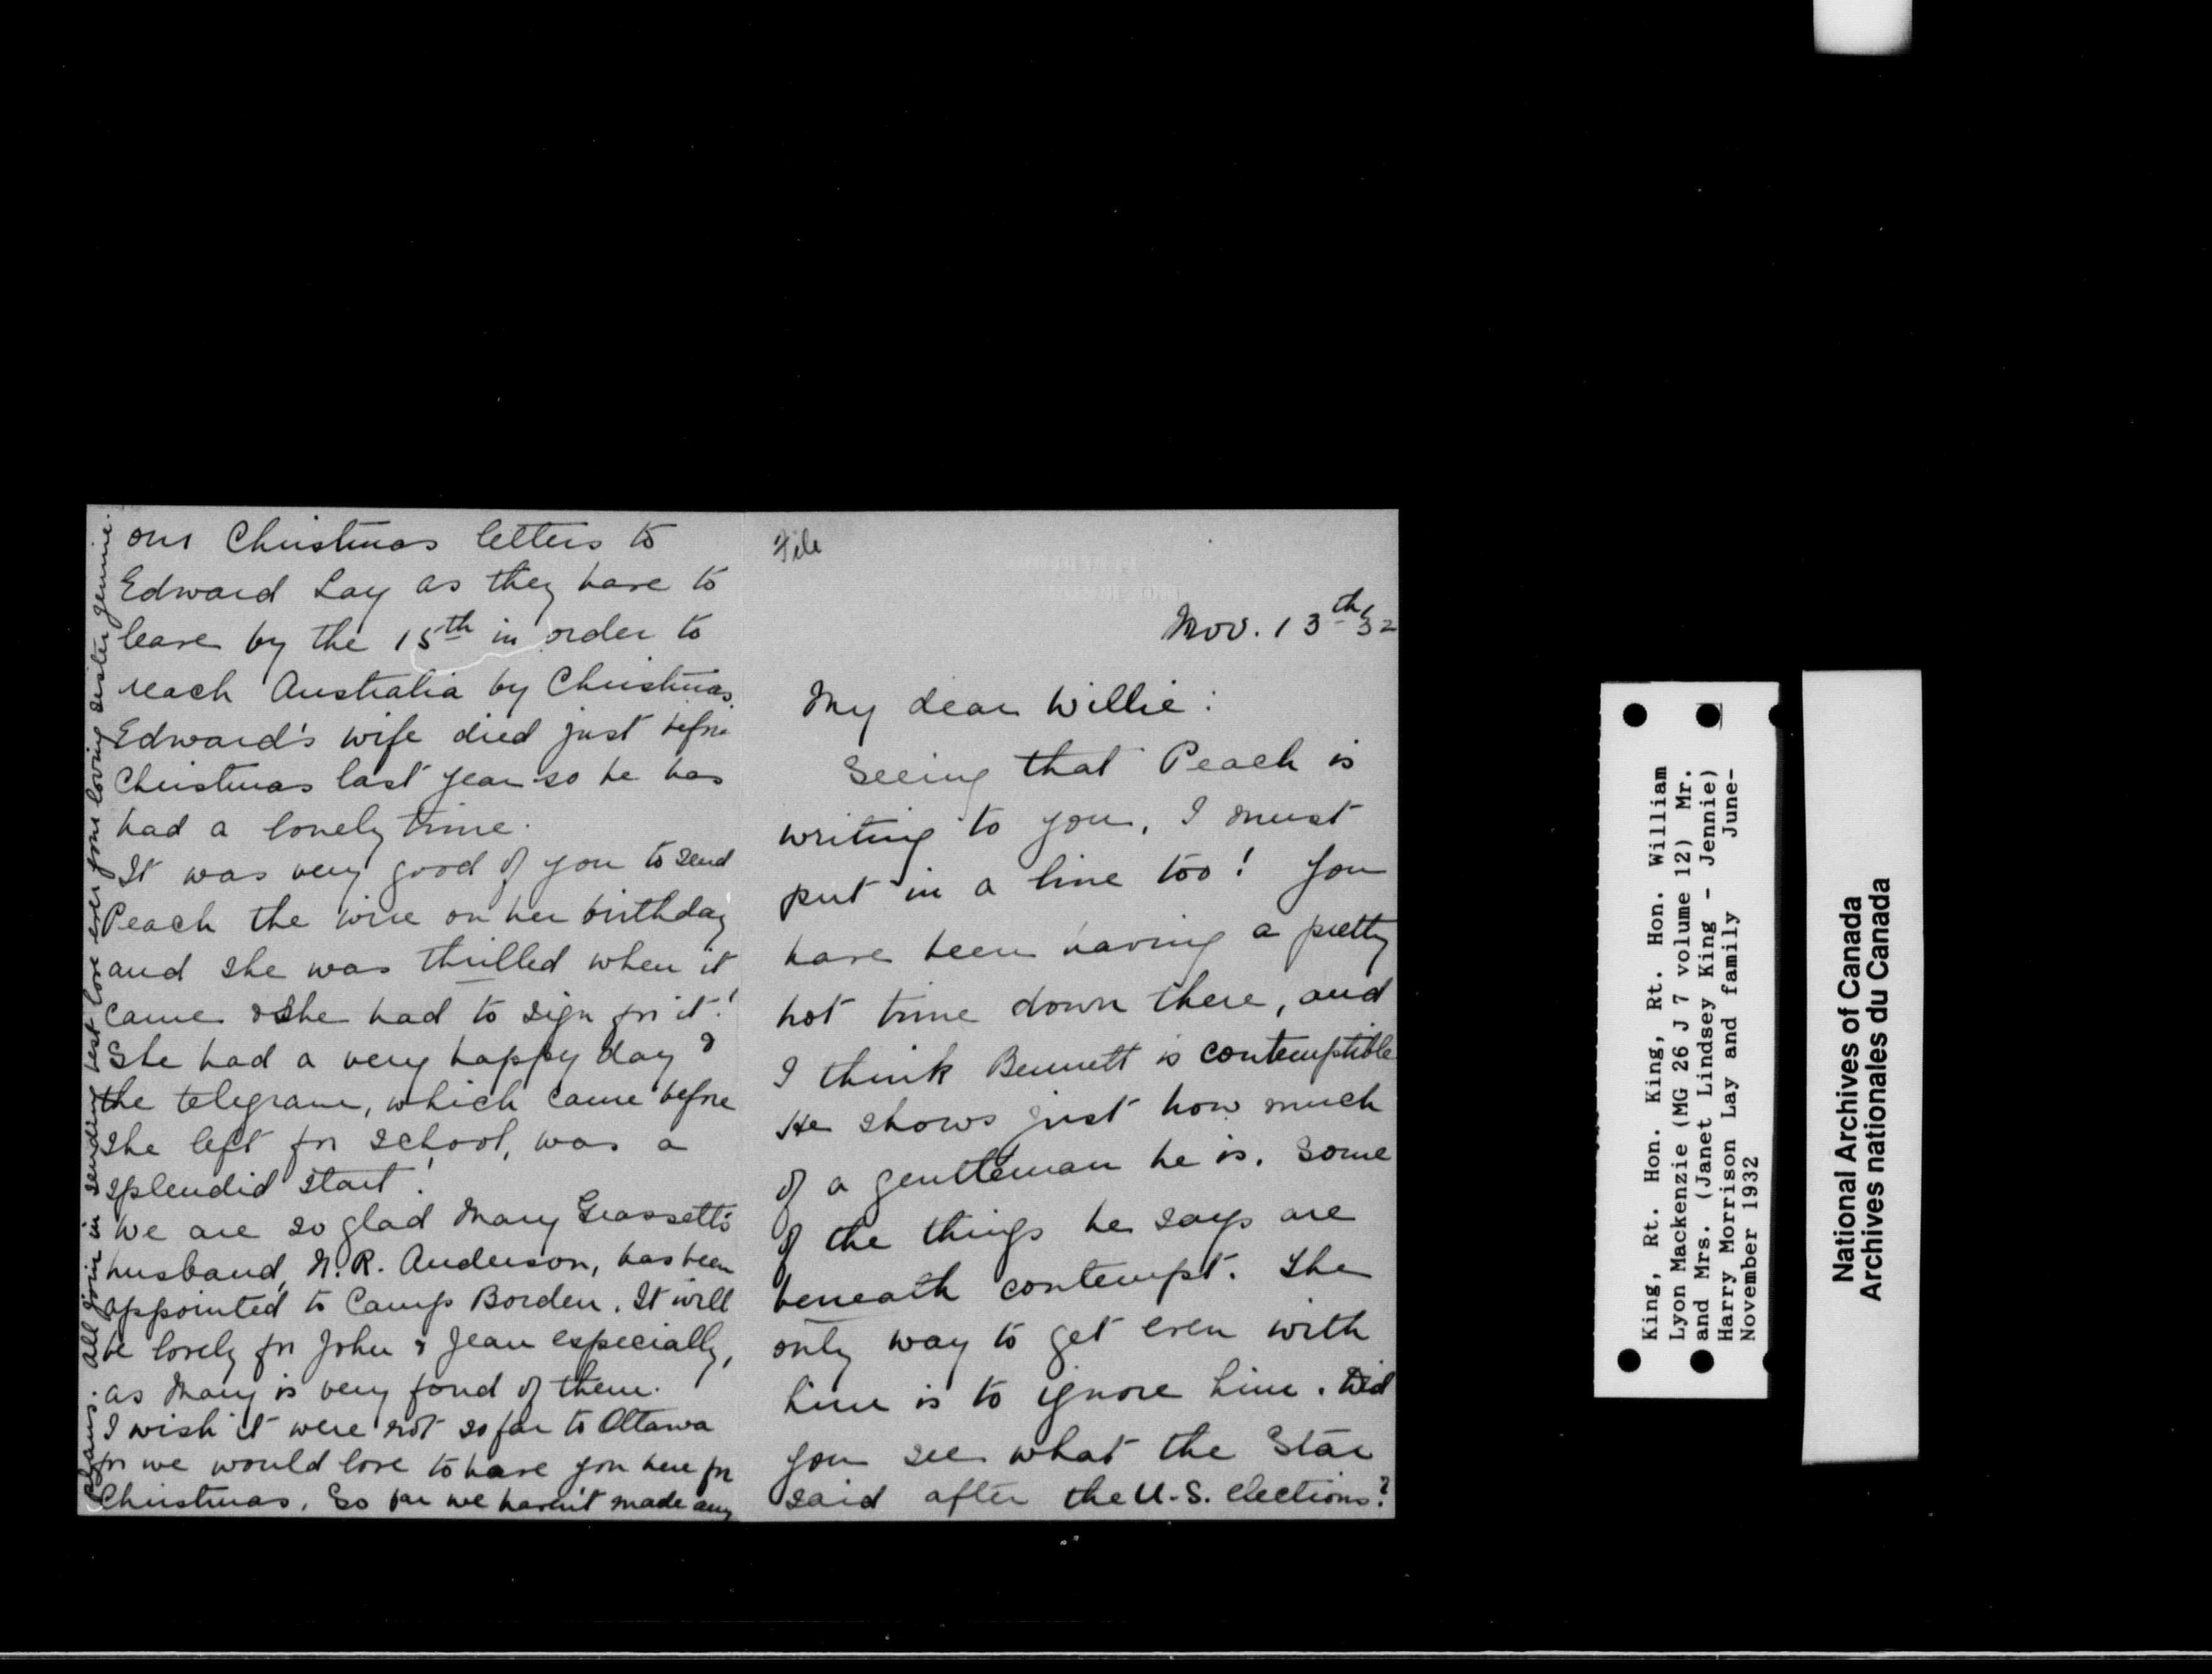 our Christmas letters to
Edward Lay as they have to
leave by the 15th in order to
reach Australia by Christmas.
Edward's wife died just before
Christmas last year so he has
had a lonely time.
It was very good of you to send
Peach the wire on her birthday
and she was thrilled when it
came & she had to sign for it!
She had a very happy day &
the telegram, which came before
she left for school, was a
splendid start!
We are so glad Mary Grassett's
husband, N.R. Anderson, has been
appointed to Camp Borden. It will
be lovely for John & Jean especially,
as Mary is very fond of them.
I wish it were not so far to Ottawa
for we would love to have you here for
Christmas. So far we haven't made any
plans. All join in sending best love ever your loving sister Jennie.
File
Nov. 13th '32
My dear Willie:
Seeing that Peach is
writing to you, I must
put in a line too! You
have been having a pretty
hot time down there, and
I think Bennett is contemptible
He shows just how much
of a gentleman he is. Some
of the things he says are
beneath contempt. The
only way to get even with
him is to ignore him. Did
you see what the Star
said after the U.S. elections?
King, Rt. Hon. King, Rt. Hon. William
Lyon Mackenzie (MG 26 J 7 volume 12) Mr.
and Mrs. (Janet Lindsey King - Jennie)
Harry Morrison Lay and family June-
November 1932
National Archives of Canada
Archives nationales du Canada